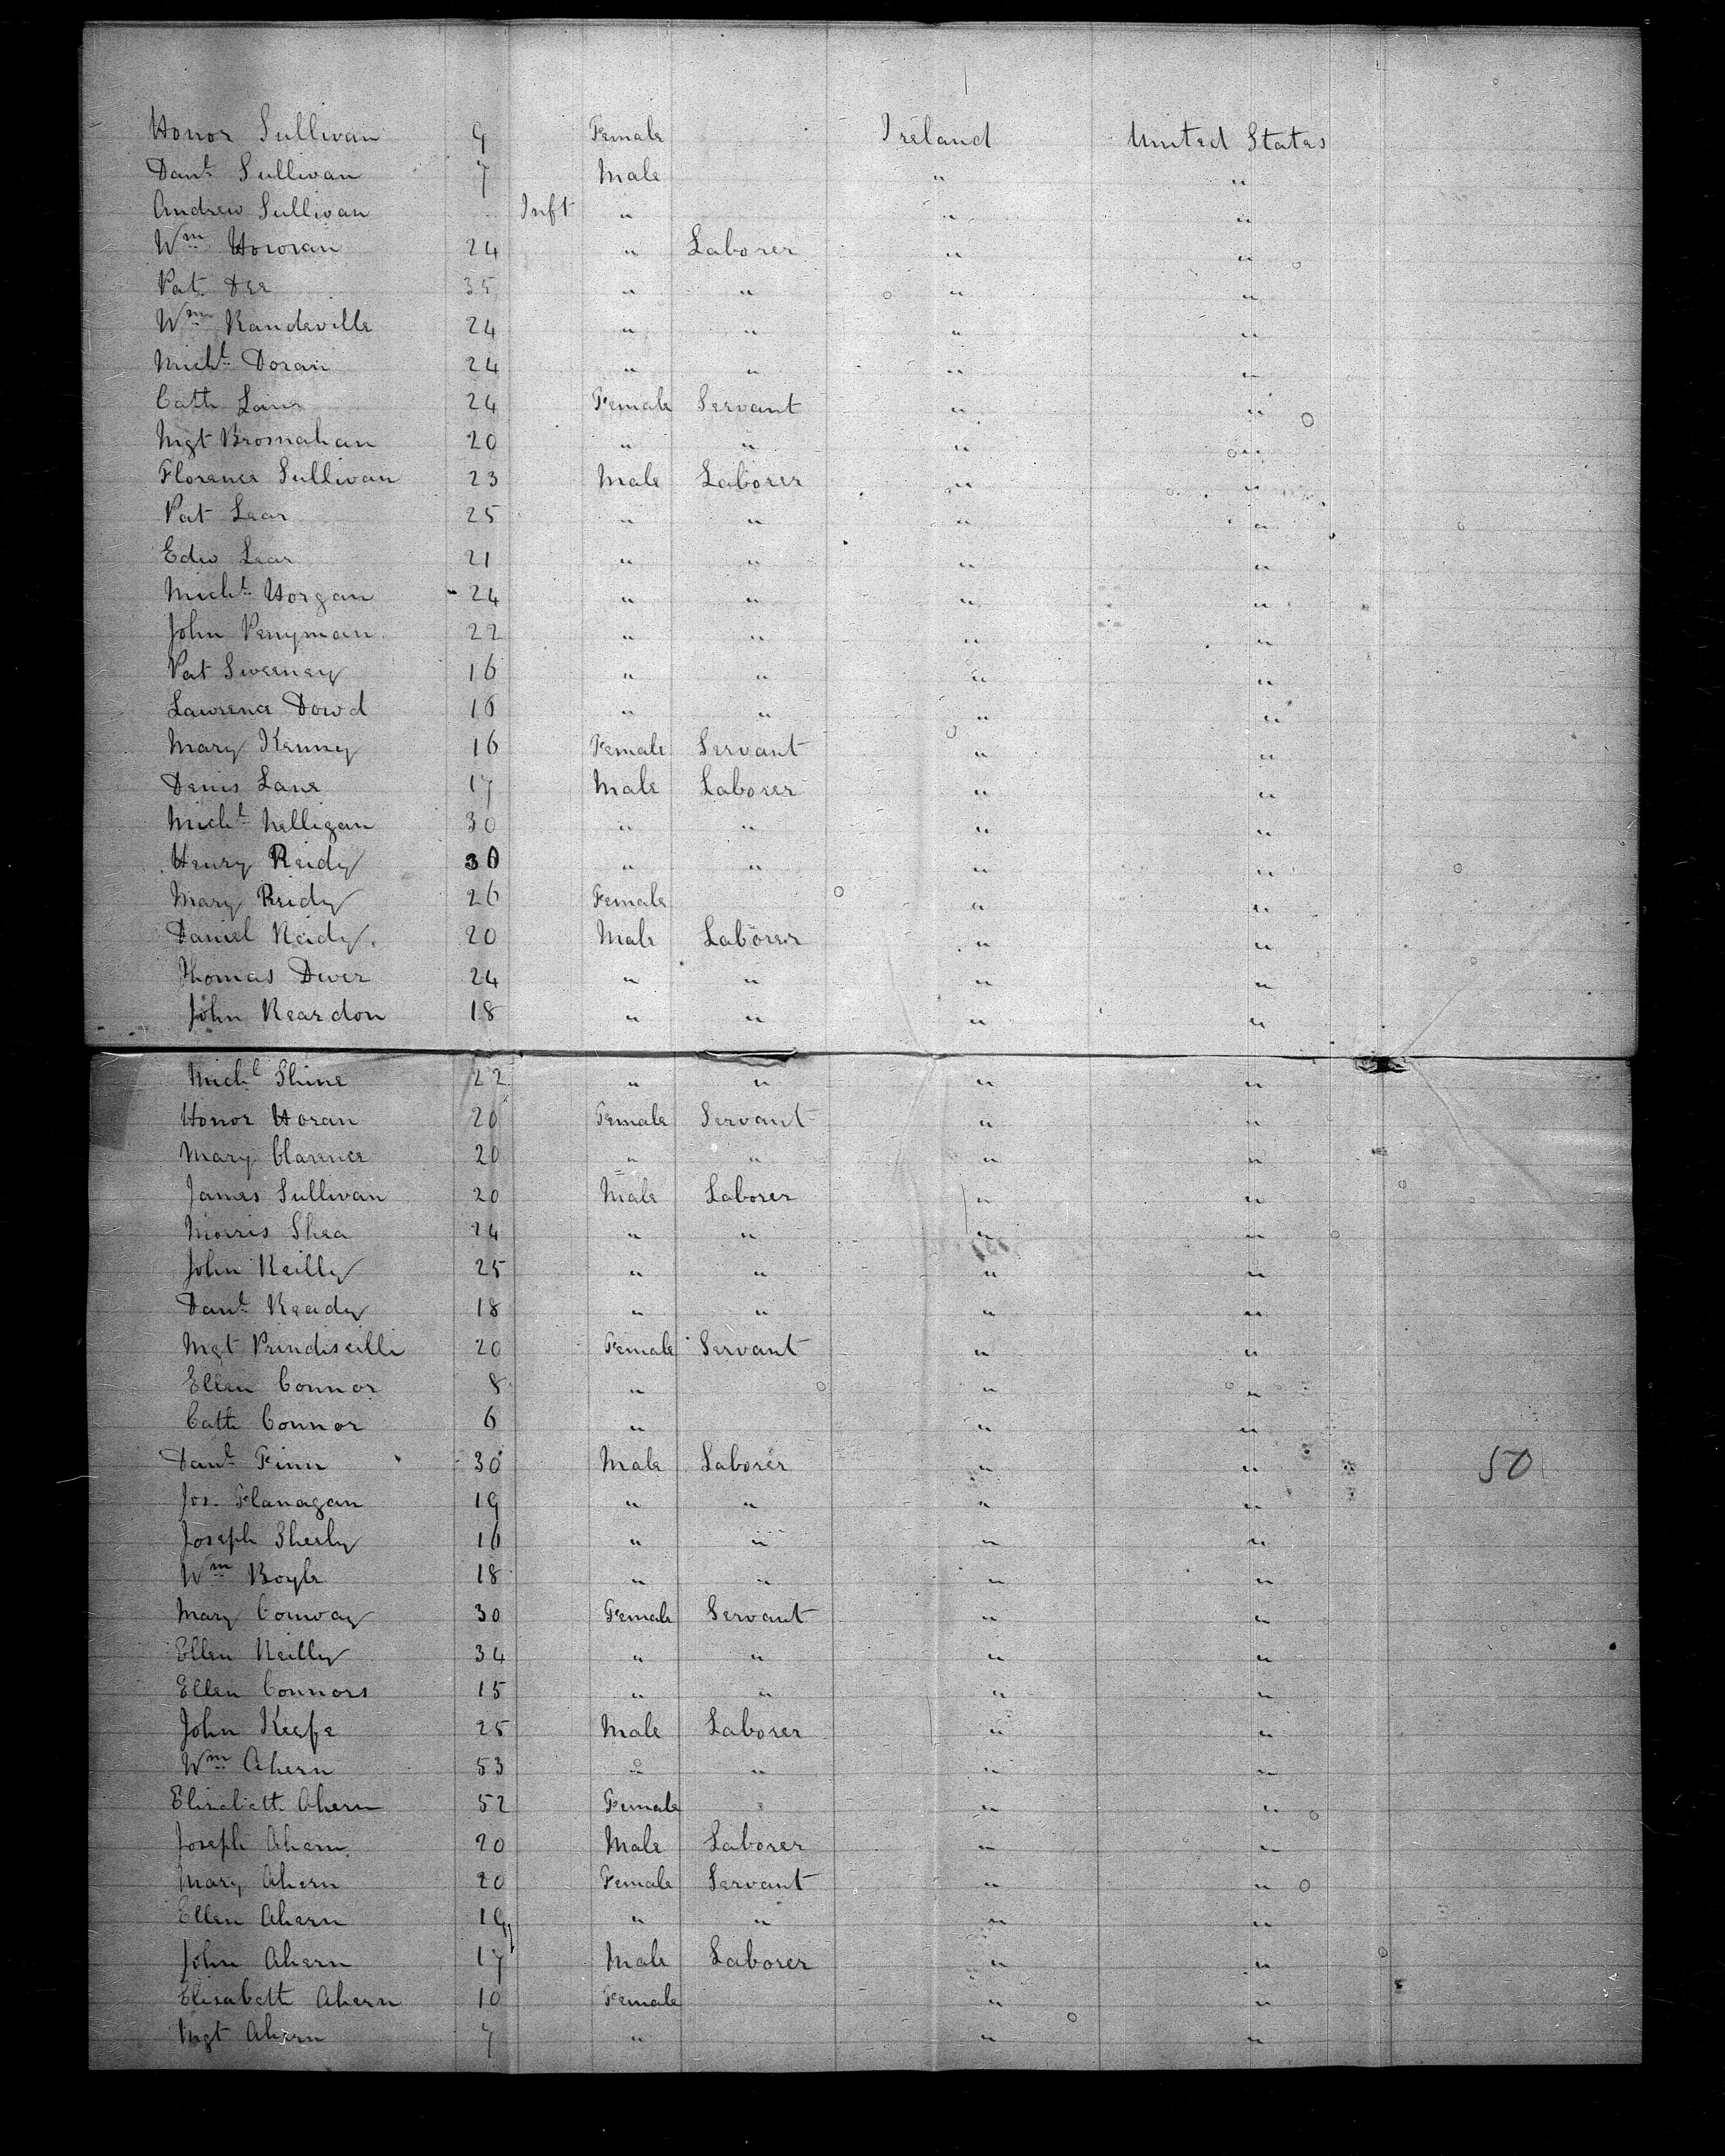 Honor Sullivan 9 Female Ireland United States
Danl Sullivan 7 Male " "
Andrew Sullivan Inft " " "
Wm Hororan 24 " Laborer " "
Pat Dee 35 " " " "
Wm Randeville 24 " " " "
Michl Doran 24 " " " "
Cath Lane 24 Female Servant " "
Mgt Brosnahan 20 " " " "
Florence Sullivan 23 Male Laborer " "
Pat Lear 25 " " " "
Edw Lear 21 " " " "
Michl Horgan 24 " " " "
John Perryman 22 " " " "
Pat Sweeney 16 " " " "
Lawrence Dowd 16 " " " "
Mary Kenny 16 Female Servant " "
Denis Lane 17 Male Laborer " "
Michl Nelligan 30 " " " "
Henry Reidy 30 " " " "
Mary Reidy 26 Female " "
Daniel Reidy. 20 Male Laborer " "
Thomas Dwer 24 " " " "
John Reardon 18 " " " "
Michl Shine 22 " " " "
Honor Horan 20 Female Servant " "
Mary Clarence 20 " " " "
James Sullivan 20 Male Laborer " "
Morris Shea 24 " " " "
John Reilly 25 " " " "
Danl Ready 18 " " " "
Mgt Prindiseille 20 Female Servant " "
Ellen Connor 8 " " "
Cath Connor 6 " " "
Danl Finn 30 Male Laborer " " 50
Jos. Flanagan 19 " " " "
Joseph Sheehy 16 " " " "
Wm Boyle 18 " " " "
Mary Conway 30 Female Servant " "
Ellen Reilly 34 " " " "
Ellen Connors 15 " " " "
John Keefe 25 Male Laborer " "
Wm Ahern 53 " " " "
Elisabeth Ahern 52 Female " "
Joseph Ahern 20 Male Laborer " "
Mary Ahern 20 Female Servant " "
Ellen Ahern 19 " " " "
John Ahern 17 Male Laborer " "
Elisabeth Ahern 10 Female " "
Mgt Ahern 7 " " "